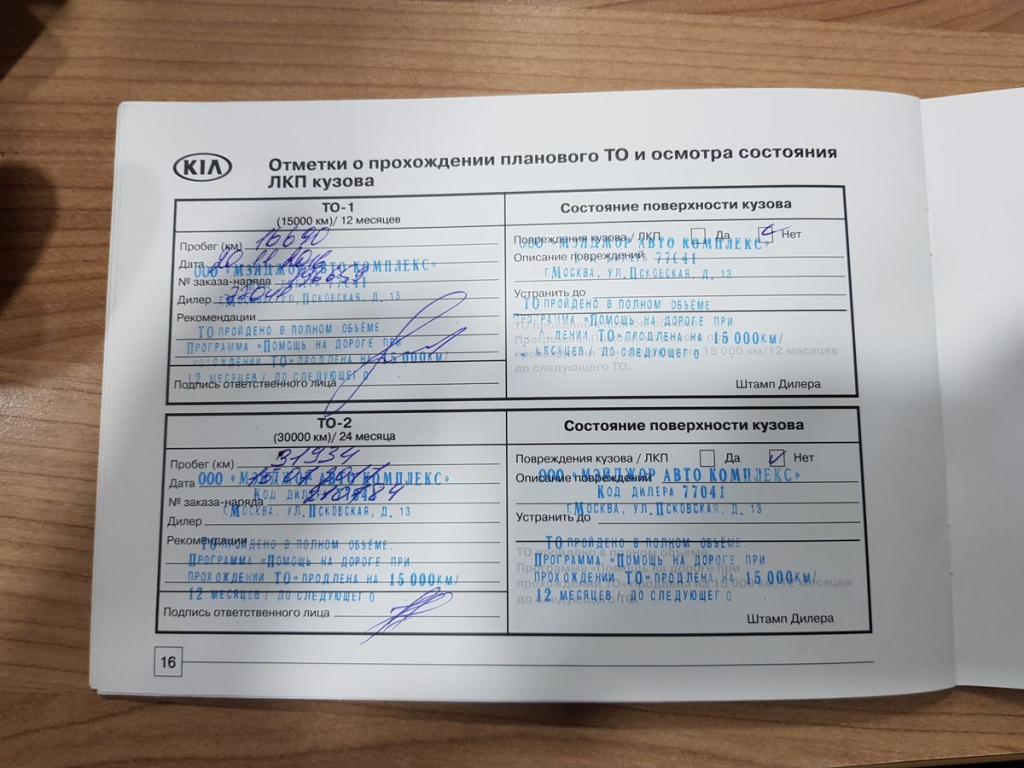 KIA
Отметки о прохождении планового ТО и осмотра состояния
ЛКП кузова
ТО-1
(15000 км)/ 12 месяцев
Пробег (км) 16690
Дата
ООО «МЭЙДЖОР АВТО КОМПЛЕКС»
№ заказа-наряда
Дилер
г.Москва, ул.Псковская, д.13
Рекомендации
ТО пройдено в полном объёме.
Программа «Помощь на дороге при
прохождении ТО» продлена на 15 000км/
12 месяцев / до следующего
Подпись ответственного лица
Состояние поверхности кузова
Повреждения кузова / ЛКП Да Нет
ООО «МЭЙДЖОР АВТО КОМПЛЕКС»
Описание повреждений
77041
г.Москва, ул.Псковская, д.13
Устранить до
ТО пройдено в полном объёме.
Программа «Помощь на дороге при
ТО» продлена на 15 000км/
месяцев / до следующего
15 000 км/12 месяцев
до следующего ТО.
Штамп Дилера
ТО-2
(30000 км)/ 24 месяца
Пробег (км) 31934
Дата
ООО «МЭЙДЖОР АВТО КОМПЛЕКС»
№ заказа-наряда
Код дилера
г.Москва, ул.Псковская, д. 13
Дилер
Рекомендации
ТО пройдено в полном объёме.
Программа «Помощь на дороге при
прохождении ТО» продлена на 15 000км/
12 месяцев / до следующего
Подпись ответственного лица
Состояние поверхности кузова
Повреждения кузова / ЛКП Да Нет
ООО «МЭЙДЖОР АВТО КОМПЛЕКС»
Описание повреждений
Код дилера 77041
г.Москва, ул.Псковская, д. 13
Устранить до
ТО пройдено в полном объёме.
Программа «Помощь на дороге при
прохождении ТО» продлена на 15 000км/
12 месяцев / до следующего
Штамп Дилера
16